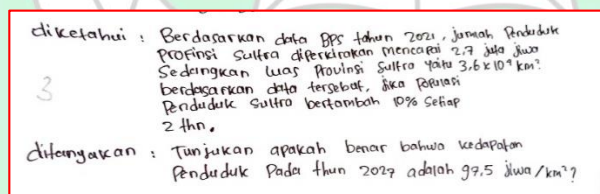 diketahui : Berdasarkan data BPS tahun 2021, jumlah Penduduk
Profinsi Sultra diperkirakan mencapai 2,7 juta jiwa
Sedangkan luas Provinsi Sultra yaitu 3,6 x 10⁴ km²
berdasarkan data tersebut, jika Populasi
Penduduk Sultro bertambah 10% Setiap
2 thn.
3
ditanyakan : Tunjukan apakah benar bahwa kedapatan
Penduduk Pada thun 2027 adalah 97,5 jiwa/km²?